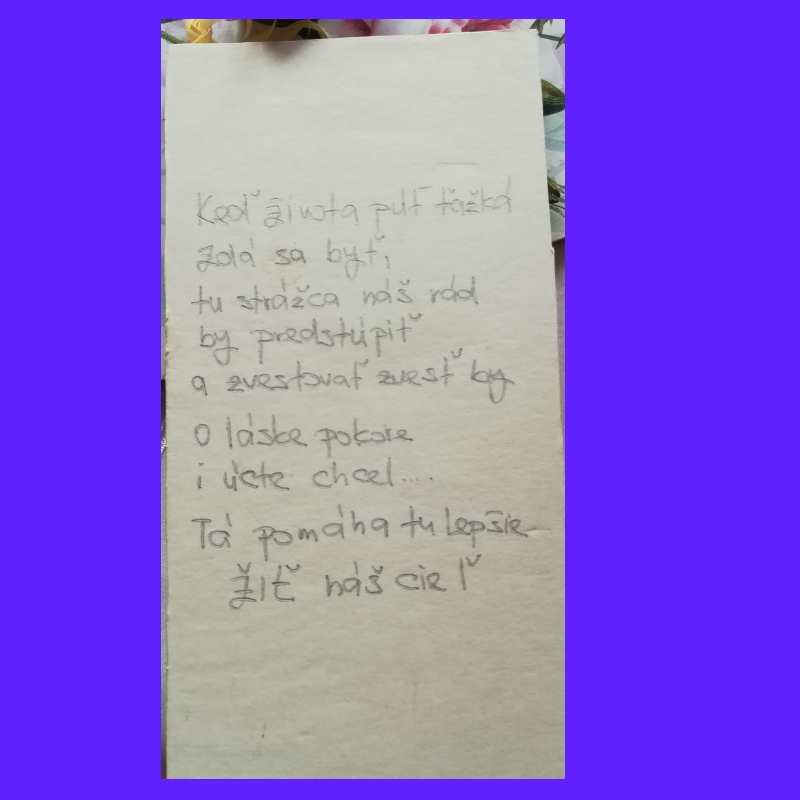 Keď života púť ťažká
zdá sa byť,
tu strážca náš rád
by predstúpiť
a zvestovať zvesť by
O láske pokore
i úcte chcel....
Tá pomáha tu lepšie
žiť náš cieľ